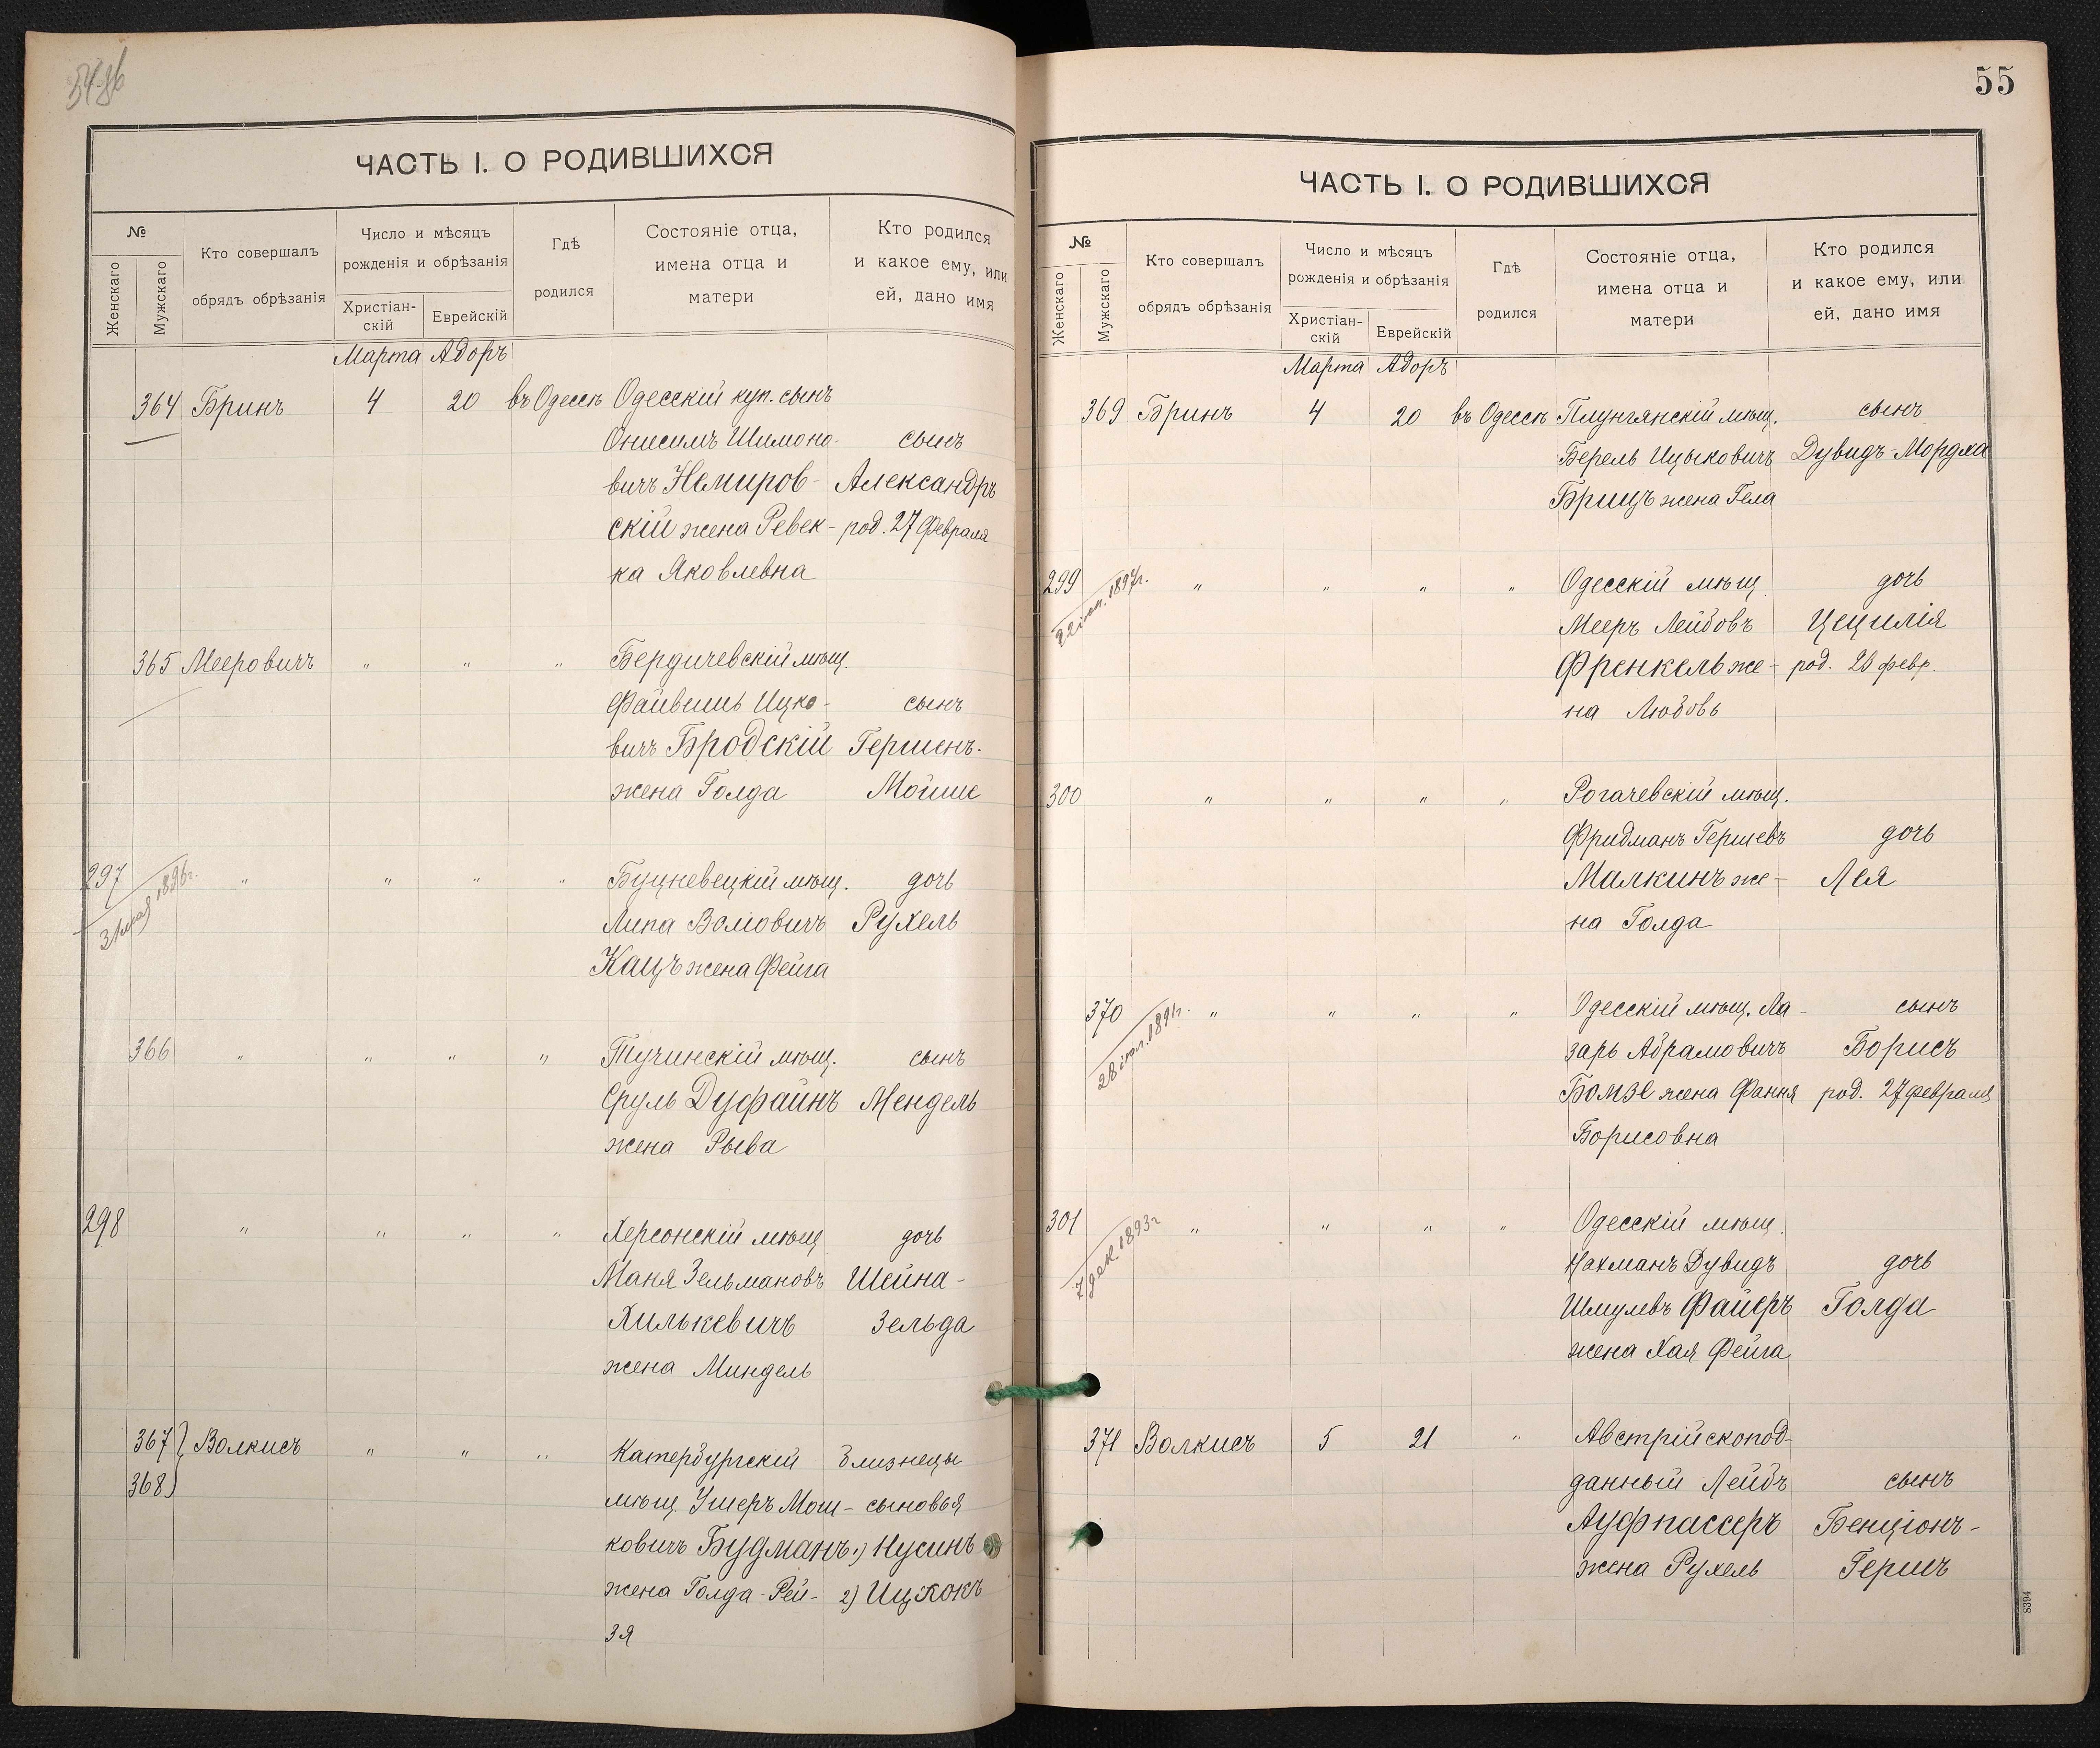 54об
ЧАСТЬ I. О РОДИВШИХСЯ
№
Женскаго
Мужскаго
Кто совершалъ
обрядъ обрѣзанія
Число и мѣсяцъ
рожденія и обрѣзанія
Христіан-
скій
Еврейскій
Гдѣ
родился
Состояніе отца,
имена отца и
матери
Кто родился
и какое ему, или
ей, дано имя
Марта Адоръ
364 Бринъ 4 20 въ Одессѣ Одесскій куп. сынъ
Онисимъ Шимоно- сынъ
вичъ Немиров- Александръ
скій жена Ревек- род. 27 Февраля
ка Яковлевна
365 Мееровичъ " " " Бердичевскій мѣщ.
Файвишь Ицко- сынъ
вичъ Бродскій Гершенъ-
жена Голда Мойше
297 " " " " Буцневецкій мѣщ. дочь
31 мая 1896г.
Липа Волфовичъ Рухель
Кацъ жена Фейга
366 " " " " Тучинскій мѣщ. сынъ
Сруль Дуфайнъ Мендель
жена Рыва
298 " " " " Херсонскій мѣщ дочь
Маня Зельмановъ Шейна-
Хилькевичъ Зельда
жена Миндель
367 Волкисъ " " " Катербургскій близнецы
368
мѣщ. Ушеръ Мош- сыновья
ковичъ Будманъ 1) Нусинъ
жена Голда-Рей- 2) Ицхокъ
зя
55
ЧАСТЬ I. О РОДИВШИХСЯ
№
Женскаго
Мужскаго
Кто совершалъ
обрядъ обрѣзанія
Число и мѣсяцъ
рожденія и обрѣзанія
Христіан-
скій
Еврейскій
Гдѣ
родился
Состояніе отца,
имена отца и
матери
Кто родился
и какое ему, или
ей, дано имя
Марта Адоръ
369 Бринъ 4 20 въ Одессѣ Плунгянскій мѣщ. сынъ
Берель Ицыковичъ Дувидъ-Мордха
Брицъ жена Гела
299 " " " " Одесскій мѣщ. дочь
1897г.
Мееръ Лейбовъ Цецилія
Френкель же- род. 26 февр.
на Любовь
300 " " " " Рогачевскій мѣщ.
Фридманъ Гершевъ дочь
Малкинъ же- Лея
на Голда
370 " " " " Одесскій мѣщ. Ла- сынъ
28 іюл. 1891г.
зарь Абрамовичъ Борисъ
Бомзе жена Фання род. 27 февраля
Борисовна
301 " " " " Одесскій мѣщ.
7 дек. 1893г
Нахманъ Дувидъ дочь
Шмулевъ Файеръ Голда
жена Хая Фейга
371 Волкисъ 5 21 " Австрійскопод-
данный Лейбъ сынъ
Ауфпассеръ Бенціонъ-
жена Рухель Гершъ
8394